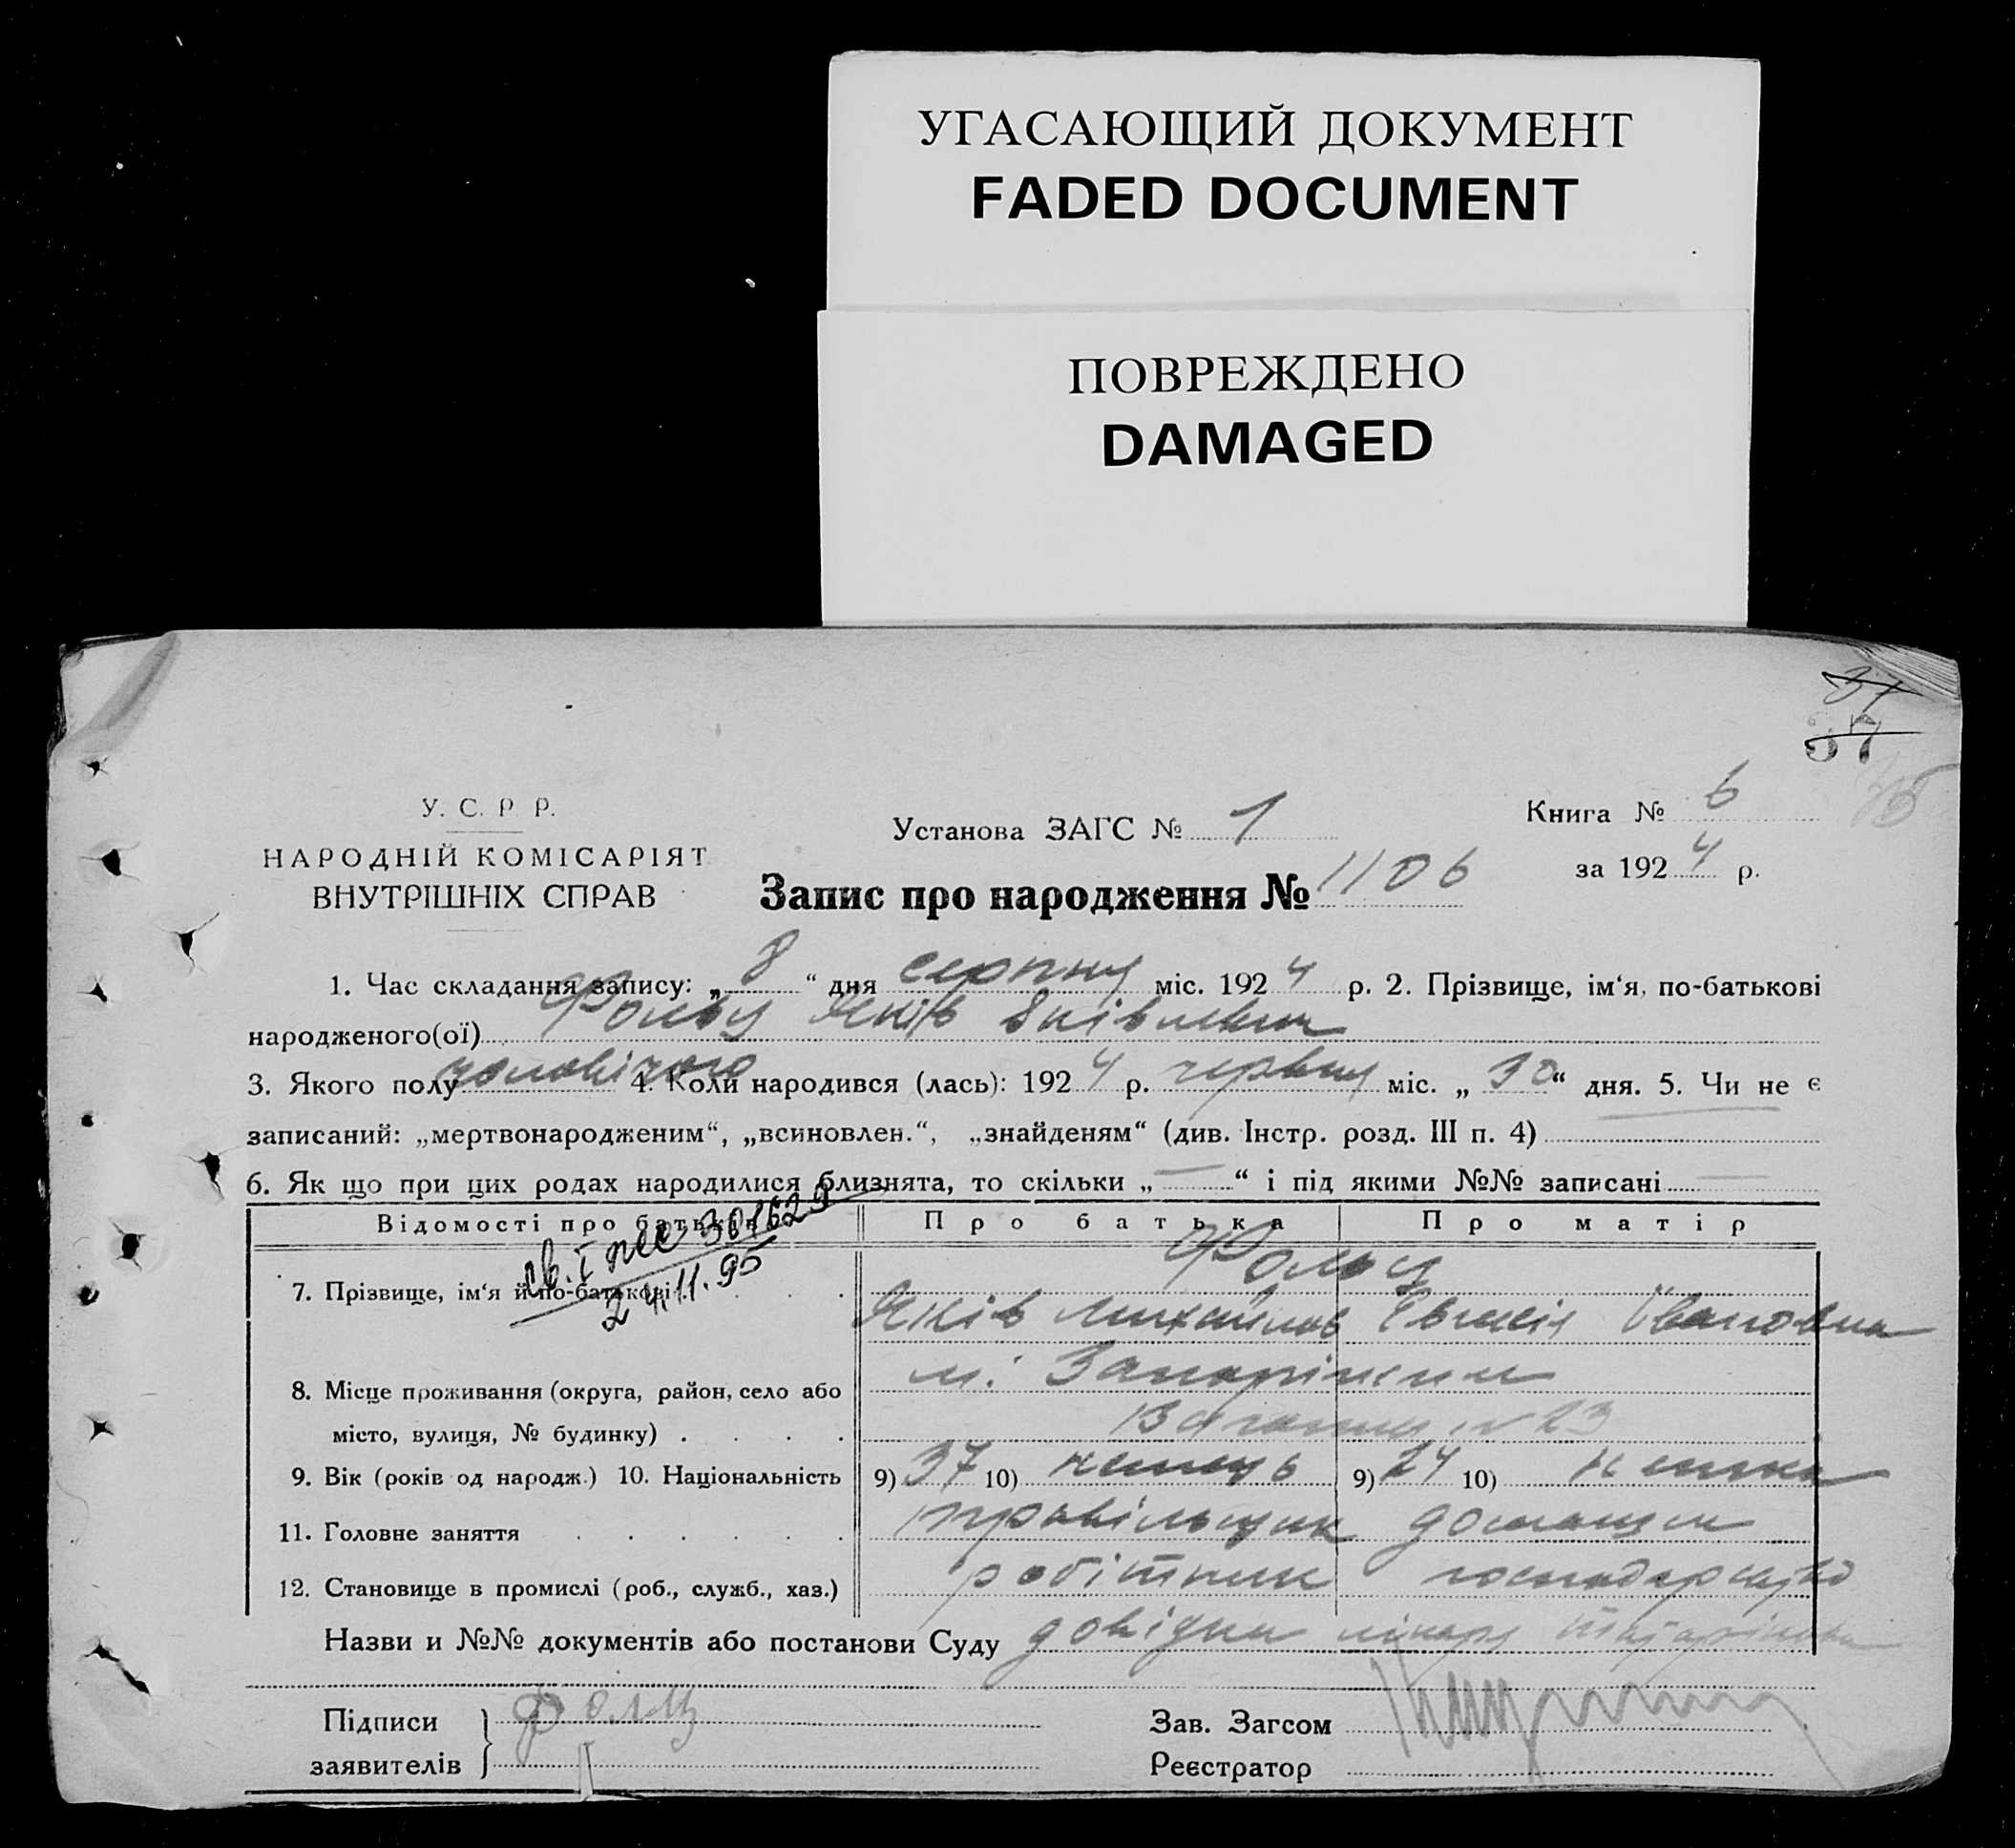 УГАСАЮЩИЙ ДОКУМЕНТ
FADED DOCUMENT
ПОВРЕЖДЕНО
DAMAGED
37
37
У. С. Р Р.
НАРОДНІЙ КОМІСАРІЯТ
ВНУТРІШНІХ СПРАВ
Установа ЗАГС № 1
Книга № 6
за 1924 р.
Запис про народження № 1106
1. Час складання запису: „8“ дня серпня міс. 1924 р. 2. Прізвище, ім‘я, по-батькові
народженого(ої) Фольц Яків Яківлевич
3. Якого полу чоловічого 4. Коли народився (лась): 1924 р. червня міс. „30“ дня. 5. Чи не є
записаний: „мертвонародженим“, „всиновлен.“, „знайденям“ (див. Інстр. розд. III п. 4)
6. Як що при цих родах народилися близнята, то скільки „—“ і під якими №№ записані —
Відомості про батьків Про батька Про матір
св. I 301629
24.11.95
Фольц
7. Прізвище, ім‘я й по-батькові . . . Яків Михайлов Івановна
8. Місце проживання (округа, район, село або м. Запоріжжя
місто, вулиця, № будинку) . . . . № 23
9. Вік (років од народж.) 10. Національність 9) 37 10) німець 9) 24 10) німка
11. Головне заняття . . . . . . домашнє
12. Становище в промислі (роб., служб., хаз.) робітник господарство
Назви и №№ документів або постанови Суду довідка лікаря
Підписи
заявителів } Фолц
Зав. Загсом
Реєстратор